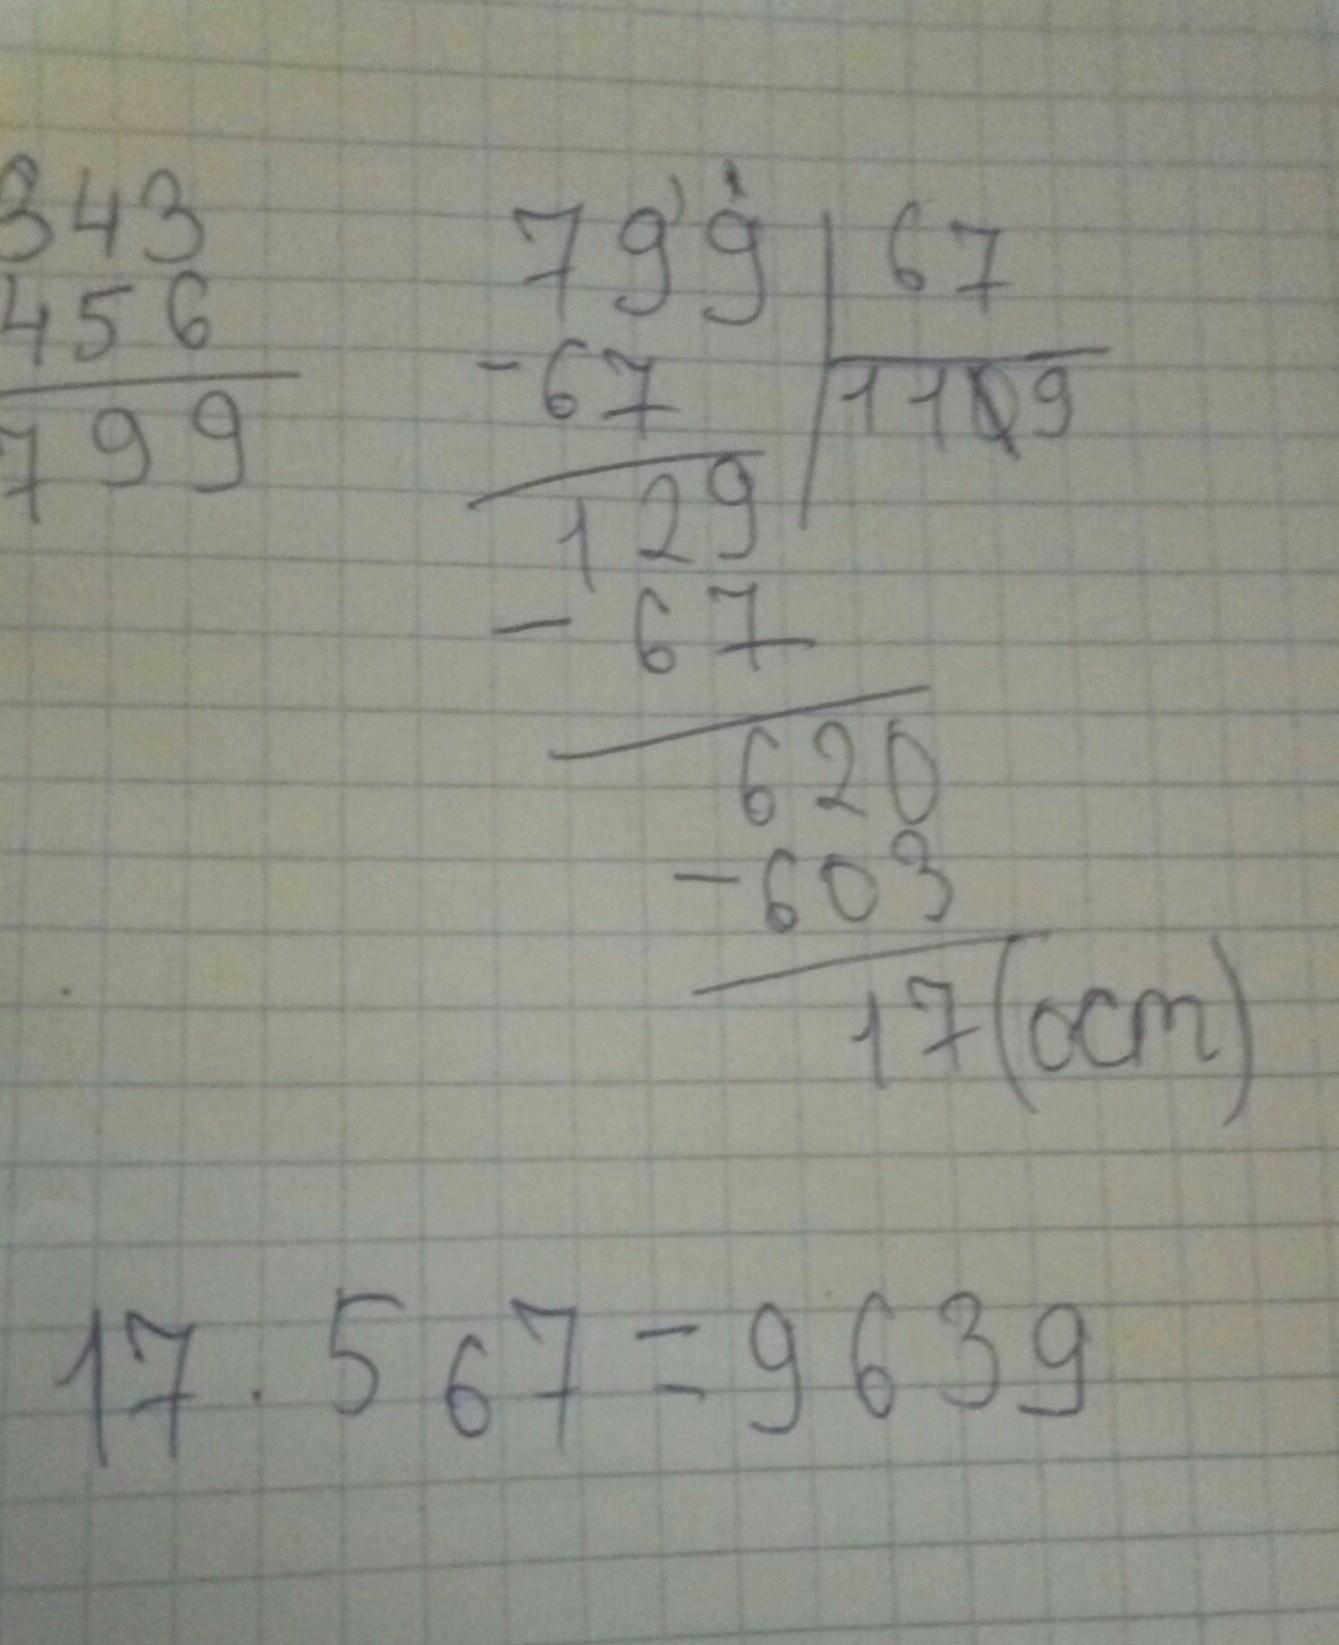 343
456
799
799 67
-67 119
129
- 67
620
-603
17 (ост)
17 · 567 = 9639